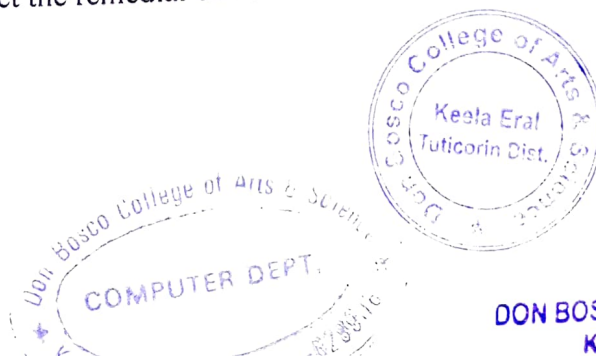 ct the remedial
Don Bosco College of Arts & Science
Keela Eral
Tuticorin Dist.
Don Bosco College of Arts & Science
COMPUTER DEPT.
DON BOS
K